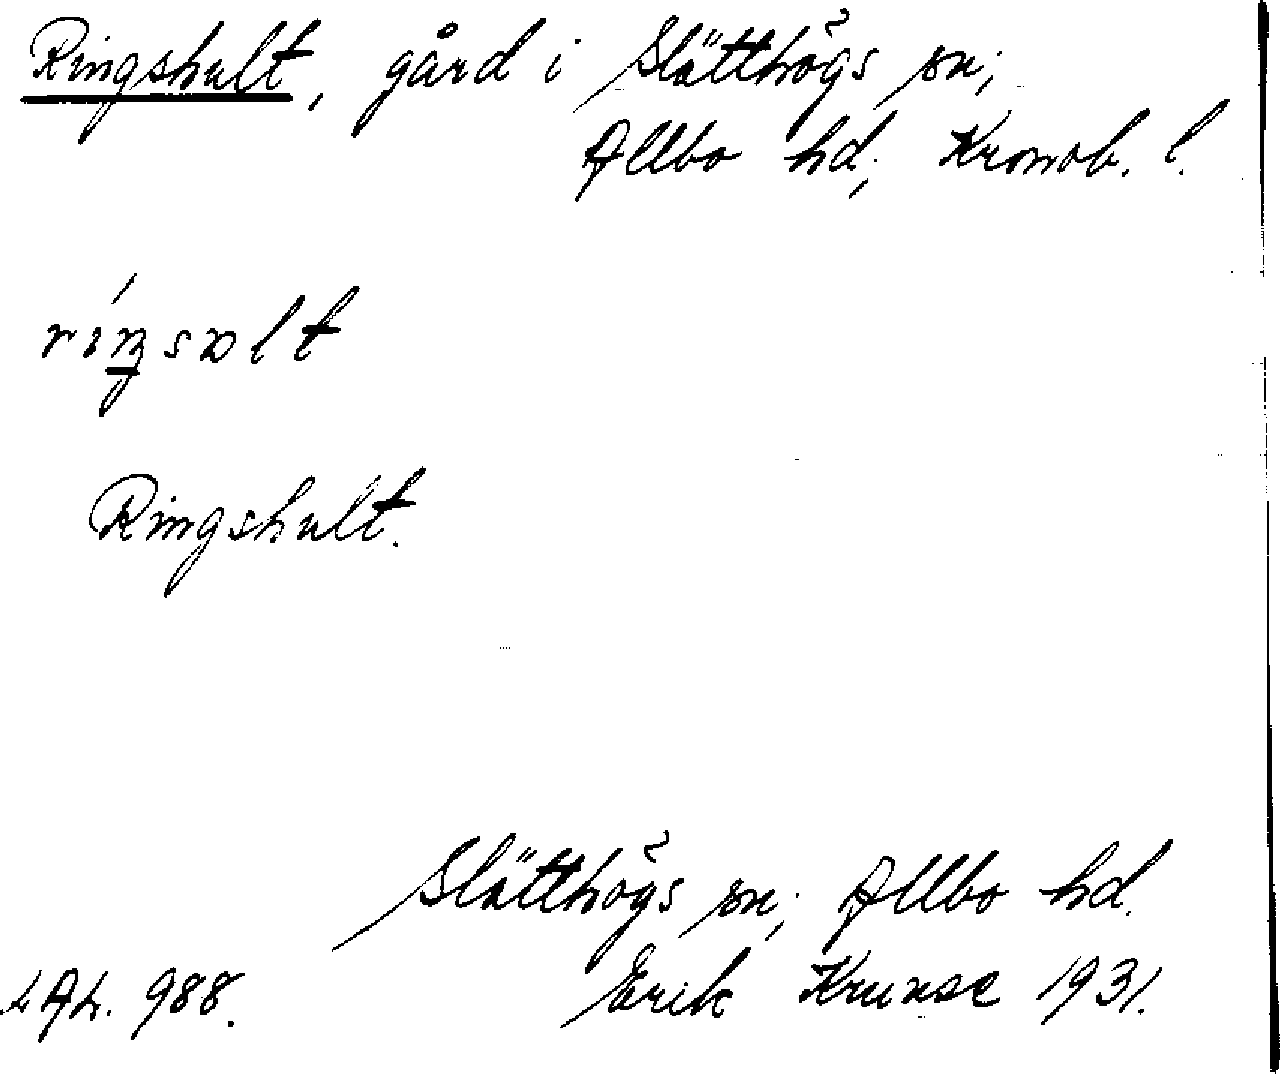 Ringshult, gård i Slätthögs sn;
Allbo hd; Kronob. l.
ríŋsωlt
Ringshult.
Slätthögs sn; Allbo hd.
LAL. 988. Erik Krunse 1931.